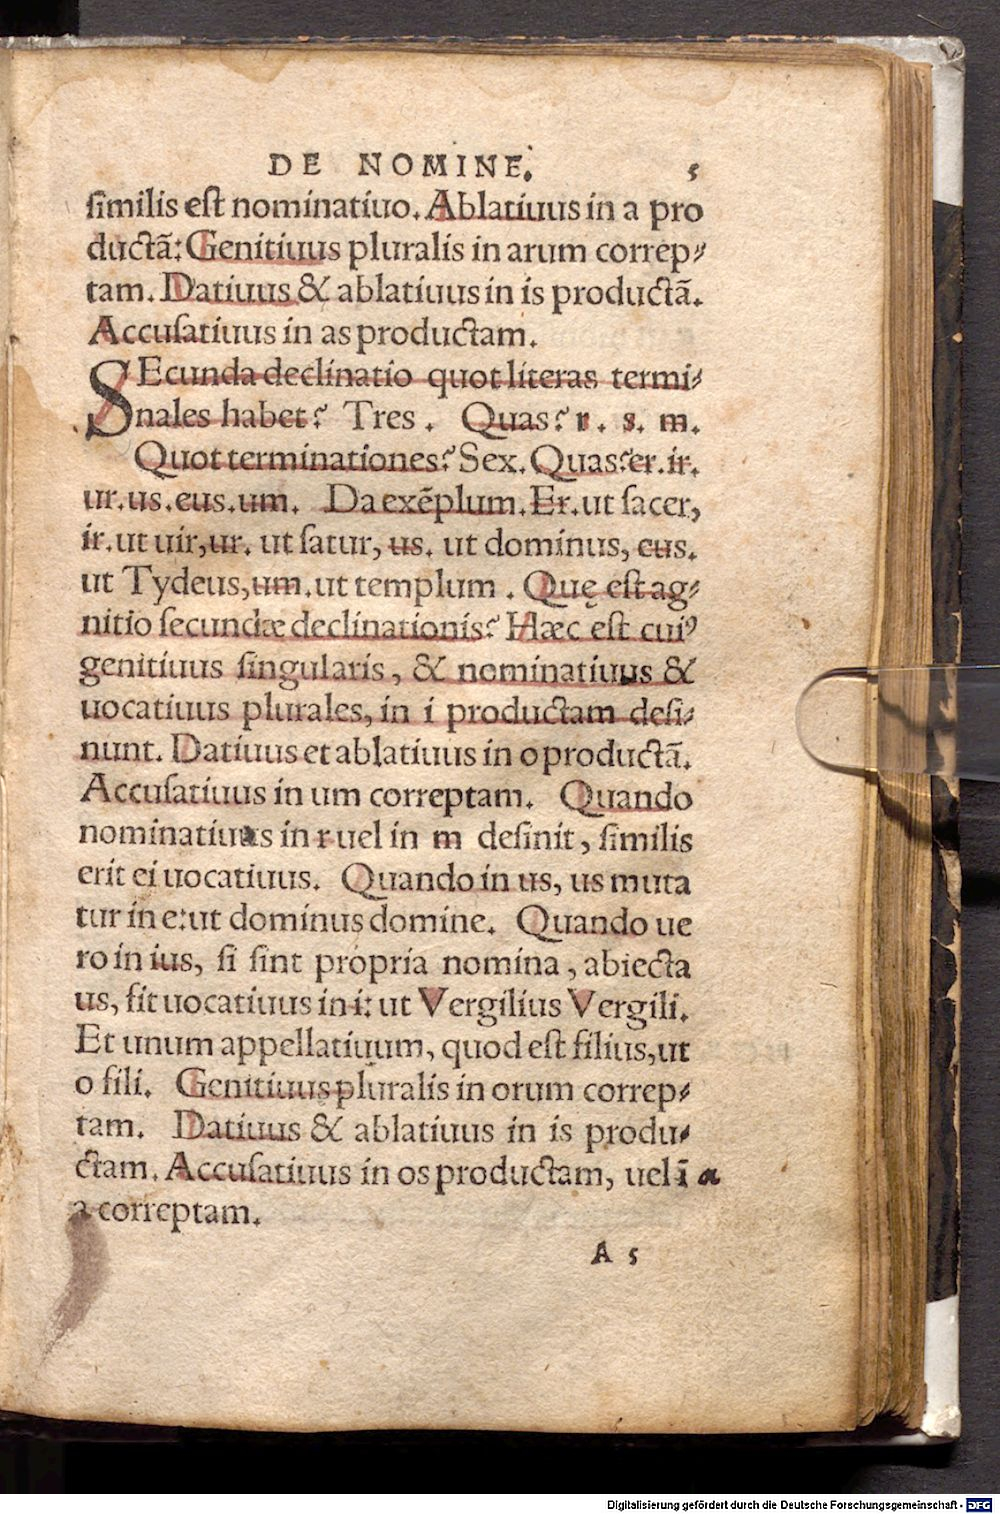 DE NOMINE. 5
ſimilis eſt nominatiuo. Ablatiuus in a pro
ductã: Genitiuus pluralis in arum correp-
tam. Datiuus & ablatiuus in is productã.
Accuſatiuus in as productam.
SEcunda declinatio quot literas termi-
nales habet? Tres. Quas? r. s. m.
Quot terminationes? Sex. Quas? er. ir.
ur. us. eus. um. Da exẽplum. Er. ut ſacer,
ir. ut uir, ur. ut ſatur, us. ut dominus, eus.
ut Tydeus, um. ut templum. Quę eſt ag-
nitio ſecundæ declinationis? Hæc eſt cuiꝰ
genitiuus ſingularis, & nominatiuus &
uocatiuus plurales, in i productam deſi-
nunt. Datiuus et ablatiuus in o productã.
Accuſatiuus in um correptam. Quando
nominatiuus in r uel in m deſinit, ſimilis
erit ei uocatiuus. Quando in us, us muta
tur in e: ut dominus domine. Quando ue
ro in ius, ſi ſint propria nomina, abiecta
us, fit uocatiuus in i: ut Vergilius Vergili.
Et unum appellatiuum, quod eſt filius, ut
o fili. Genitiuus pluralis in orum correp-
tam. Datiuus & ablatiuus in is produ-
ctam. Accuſatiuus in os productam, uel ĩ a
a correptam.
A 5
Digitalisierung gefördert durch die Deutsche Forschungsgemeinschaft - DFG